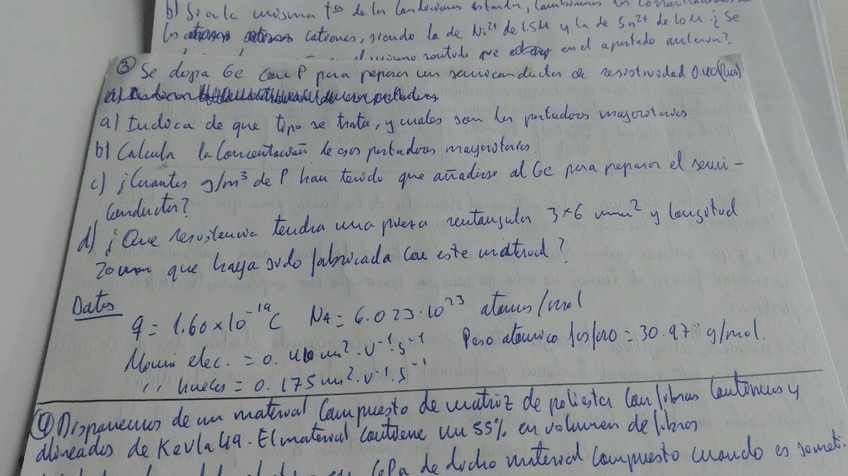 b) Si a la misma tª de las condiciones estandar, cambiamos las concentraciones
los cationes, siendo la de Ni2+ de 1.5M y la de Sn2+ de 10 M ¿ Se
el mismo sentido que en el apartado anterior?
③ Se dopa Ge con P para preparar un semiconductor de resistividad
a) Indica de que tipo se trata, y cuales son los portadores mayoritarios.
b) Calcula la concentración de esos portadores mayoritarios.
c) ¿Cuantos g/m³ de P han tenido que añadirse al Ge para preparar el semi-
conductor?
d) ¿Que resistencia tendra una pieza rectangular 3x6 mm² y longitud
20 mm que haya sido fabricada con este material?
Datos
q = 1.60x10⁻¹⁹C NA = 6.023·10²³ atomos/mol
Movi elec. = 0. m²·V⁻¹·s⁻¹ Peso atomico fosforo = 30.97 g/mol.
" huecos = 0.175 m²·V⁻¹·s⁻¹
④ Disponemos de un material compuesto de matriz de poliester con fibras continuas y
alineadas de Kevlar 49. El material contiene un 55% en volumen de fibras
de dicho material compuesto cuando es somet.